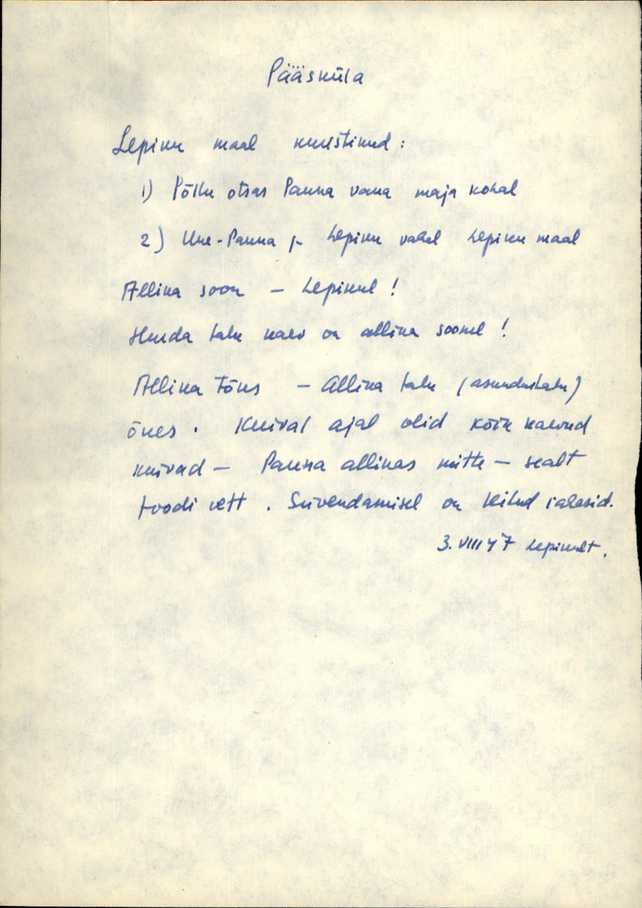 Pääsküla
Lepiku maal muistised:
1) Põllu otsas Panna vana maja kohal
2) Uue-Panna ja Lepiku vahel Lepiku maal
Allika soon - Lepikul!
talu kaev on allika soonel!
Allika Tõnu - Allika talu (asundustalu)
õues. Kuival ajal olid kõik kaevud
kuivad - Panna allikas mitte - sealt
toodi vett. Süvendamisel on leitud
3. VIII 47 Lepikult.